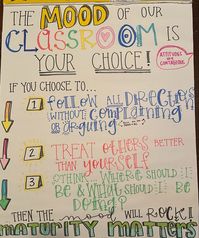 THE MOOD OF OUR
CLASSROOM IS
YOUR CHOICE!
ATTITUDES
CONTAGIOUS
IF YOU CHOOSE TO...
1 FOLLOW ALL DIRECTIONS
WITHOUT COMPLAINING
OR ARGUING
2 TREAT OTHERS BETTER
THAN YOURSELF
3 THINK "WHERE SHOULD I
BE & WHAT SHOULD I BE
DOING?"
THEN THE mood WILL ROCK!
MATURITY MATTERS